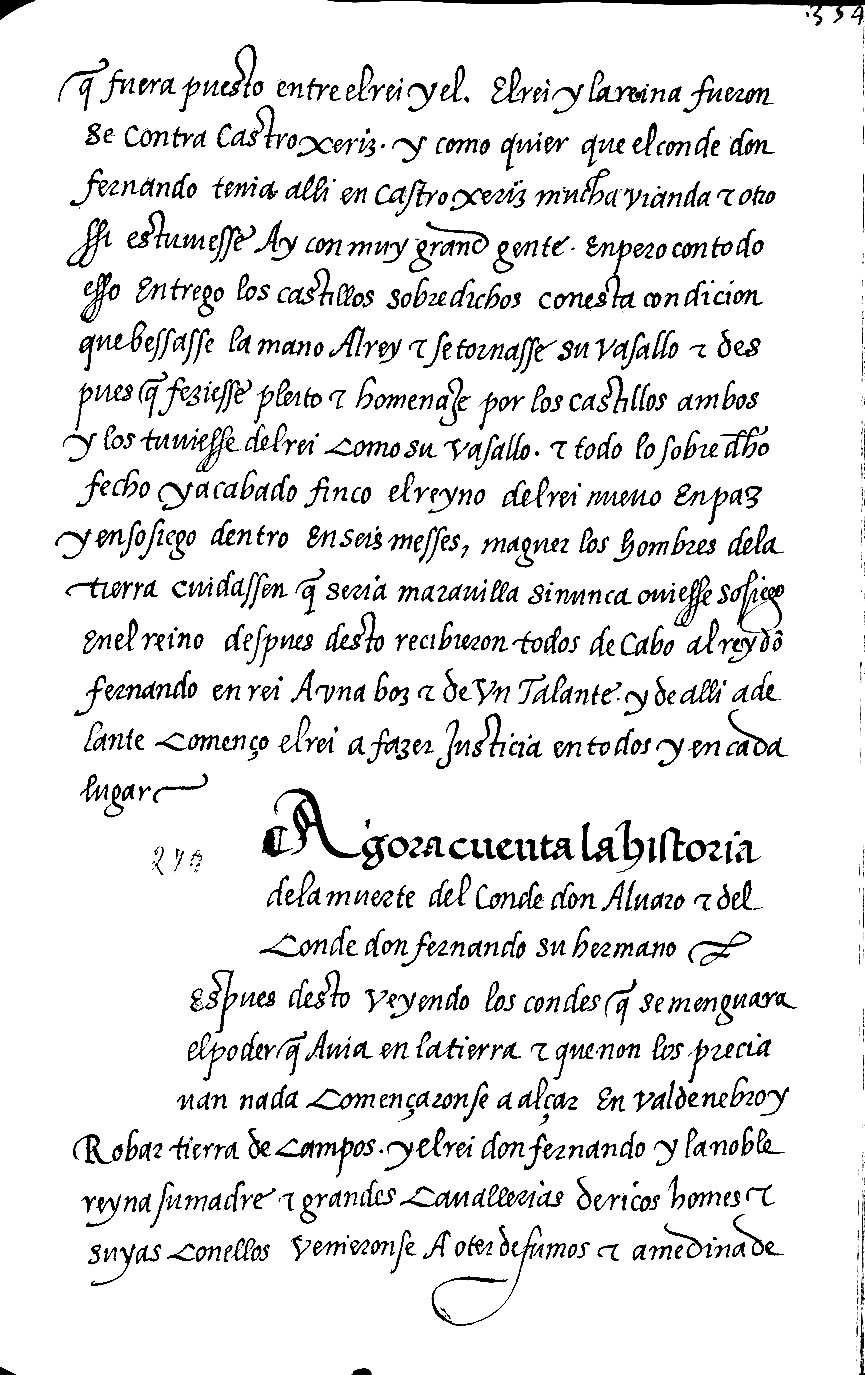 334
q̃ fuera puesto entre el rei y el. El rei y la reina fueron
se contra Castro xeriz. y como quier que el conde don
fernando tenia alli en castro xeriz mucha vianda τ otro
ssi estuuiesse Ay con muy grand gente. Enpero con todo
esso Entrego los castillos sobre dichos con esta condicion
que bessasse la mano Al rey τ se tornasse su vasallo τ des
pues q̃ feziesse pleito τ homenaje por los castillos ambos
y los tuuiesse del rei como su vasallo. τ todo lo sobre dh̃o
fecho y acabado finco el reyno del rei nueuo En paz
y en sosiego dentro En seis messes, maguer los hombres de la
tierra cuidassen q̃ seria marauilla si nunca ouiesse sosiego
En el reino despues desto recibieron todos de Cabo al rey dõ
fernando en rei A vna boz τ de Vn Talante. y de alli ade
lante començo el rei a fazer Justicia en todos y en cada
lugar
Agora cuenta la historia
270
de la muerte del Conde don Aluaro τ del
Conde don fernando su hermano
Espues desto veyendo los condes q̃ se menguara
el poder q̃ Auia en la tierra τ que non los precia
uan nada Començaronse a alçar En valdenebro y
Robar tierra de Campos. y el rei don fernando y la noble
reyna su madre τ grandes Cauallerias de ricos homes τ
suyas Con ellos Venieronse A oter de fumos τ a medina de